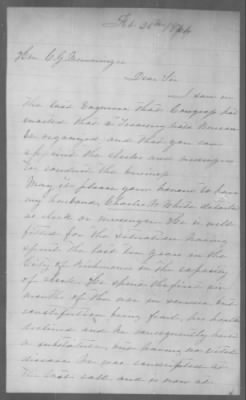 Feb 26th 1864
Hon C. G. Memminger
Dear Sir
I saw in
the last Enquirer that Congress has
enacted that a Treasury Note Bureau
be organized and that you can
appoint the clerks and messengers
to conduct the business
May it please your honor to have
my husband Charles W White detailed
as clerk or messenger He is well
fitted for the situation having
spent the last ten years in the
City of Richmond in the capacity
of clerk. He spent the first six
months of the war in service but
constitution being frail, his health
declined and he subsequently hired
a substitute, not having no
disease he was conscripted at
the last call and is now at